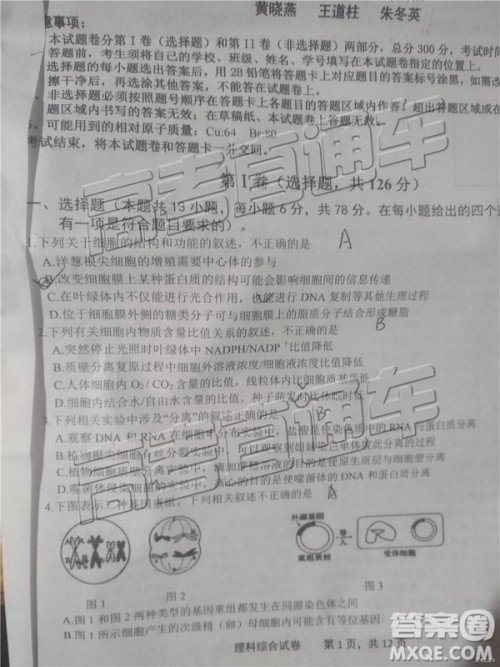 黄晓燕 王道柱 朱冬英
意事项：
本试题卷分第 I 卷（选择题）和第 II 卷（非选择题）两部分，总分 300 分，考试时间
答题前，考生须将自己的学校、班级、姓名、学号填写在本试题卷指定的位置上。
选择题的每小题选出答案后，用 2B 铅笔将答题卡上对应题目的答案标号涂黑，如需改
擦干净后，再选涂其它答案，不能答在试题卷上。
非选择题必须按照题号顺序在答题卡上各题目的答题区域内作答。超出答题区域或
答题区域内，在草稿纸、本试题卷上答题无效。
可能用到的相对原子质量：Cu:64 Br:80
考试结束，将本试题卷和答题卡一并交回。
第 I 卷（选择题，共 126 分）
一、选择题（本题共 13 小题，每小题 6 分，共 78 分。在每小题给出的四个
有一项是符合题目要求的）。
1.下列关于细胞的结构和功能的叙述，不正确的是 A
A.洋葱根尖细胞的增殖需要中心体的参与
B.改变细胞膜上某种蛋白质的结构可能会影响细胞间的信息传递
C.在叶绿体内不仅能进行光合作用，还能进行 DNA 复制等其他生理过程
D.位于细胞膜外侧的糖类分子可与细胞膜上的脂质结合形成糖脂
2.下列有关细胞内物质含量比值关系的叙述，不正确的是 B
A.突然停止光照时叶绿体中 NADPH/NADP⁺比值降低
B.质壁分离复原过程中细胞液浓度/细胞外溶液浓度比值降低
C.人体细胞内 O₂ / CO₂ 含量的比值，线粒体内比细胞质基质低
D.细胞内结合水/自由水的比值，种子萌发时比休眠时低
3.下列相关实验中涉及“分离”的叙述正确的是 B
A.观察 DNA 和 RNA 在细胞中的分布实验中，盐酸能够使染色质中的 DNA 和蛋白质分离
B.植物根尖细胞有丝分裂实验中，可观察到姐妹染色单体彼此分离的过程
C.绿叶中色素的提取和分离实验中，
D.噬菌体侵染细菌实验中，
的目的是使噬菌体的 DNA 和蛋白质分离
4.下图表示三种基因重组，下列相关叙述不正确的是 A
外源基因
重组质粒
受体细胞
图 1
图 2
图 3
A.图 1 和图 2 两种类型的基因重组都发生在同源染色体之间
B.图 1 所示细胞产生的次级精（卵）母细胞内有可能含有等位基因
理科综合试卷 第 1 页，共 12 页
高考直通车
高考直通车